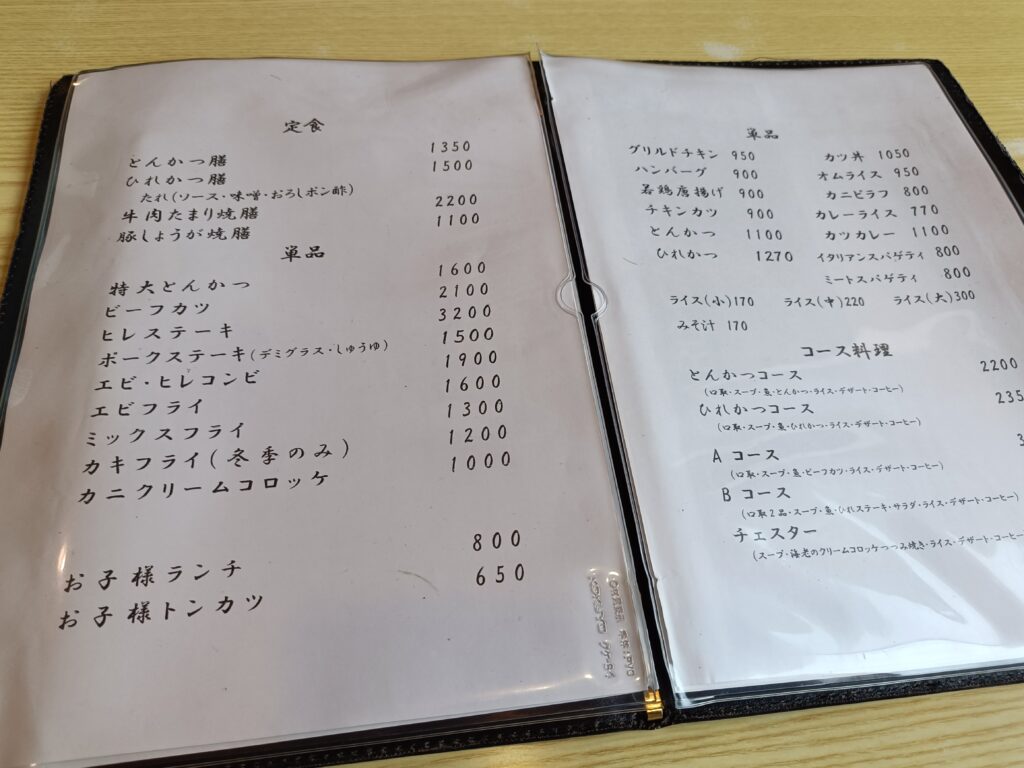 定食
とんかつ膳 1350
ひれかつ膳 1500
たれ(ソース・味噌・おろしポン酢)
牛肉たまり焼膳 2200
豚しょうが焼膳 1100
単品
特大とんかつ 1600
ビーフカツ 2100
ヒレステーキ 3200
ポークステーキ(デミグラス・しゅうゆ) 1500
エビ・ヒレコンビ 1900
エビフライ 1600
ミックスフライ 1300
カキフライ(冬季のみ) 1200
カニクリームコロッケ 1000
お子様ランチ 800
お子様トンカツ 650
単品
グリルドチキン 950 カツ丼 1050
ハンバーグ 900 オムライス 950
若鶏唐揚げ 900 カニピラフ 800
チキンカツ 900 カレーライス 770
とんかつ 1100 カツカレー 1100
ひれかつ 1270 イタリアンスパゲティ 800
ミートスパゲティ 800
ライス(小)170 ライス(中)220 ライス(大)300
みそ汁 170
コース料理
とんかつコース 2200
(口取・スープ・魚・とんかつ・ライス・デザート・コーヒー)
ひれかつコース 235
(口取・スープ・魚・ひれかつ・ライス・デザート・コーヒー)
Aコース 3
(口取・スープ・魚・ビーフカツ・ライス・デザート・コーヒー)
Bコース
(口取2品・スープ・魚・ひれステーキ・サラダ・ライス・デザート・コーヒー)
チェスター
(スープ・海老のクリームコロッケつつみ焼き・ライス・デザート・コーヒー